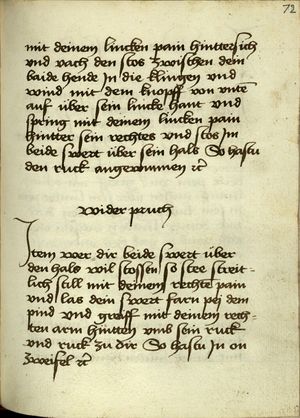 72
mit deinem lincken pain hinttersich
vnd vach den stos zwischen dem
baide hende In die klingen vnd
wind mit dem knopff von vnte
auf über sein lincke hant vnd
spring mit deinem lincken pain
hintter sein rechtes vnd stos Im
beide swert über sein hals So hastu
den ruck angewunnen etc
wider pruch
Item wer dir beide swert über
den hals wil stossen so stee streit-
lich still mit deinem rechte pain
vnd las dein swert farn pei dem
pind vnd greiff mit deinem rech-
ten arm hintten vmb sein ruck
vnd ruck zu dir So hastu In on
zweifel etc